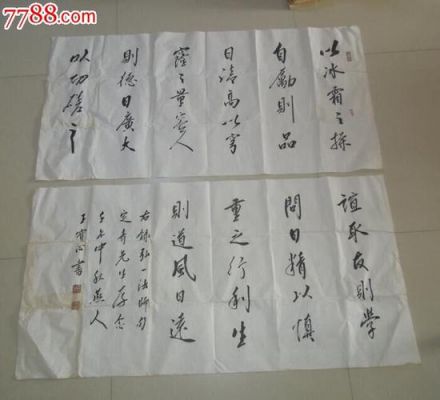 7788.com
以冰霜之操
自勵則品
日清高以穹
窿之量容人
則德日廣大
以切磋之
誼取友則學
問日精以慎
重之行利生
則道風日遠
右錄弘一法師句
先生存念
壬午中秋燕人
書